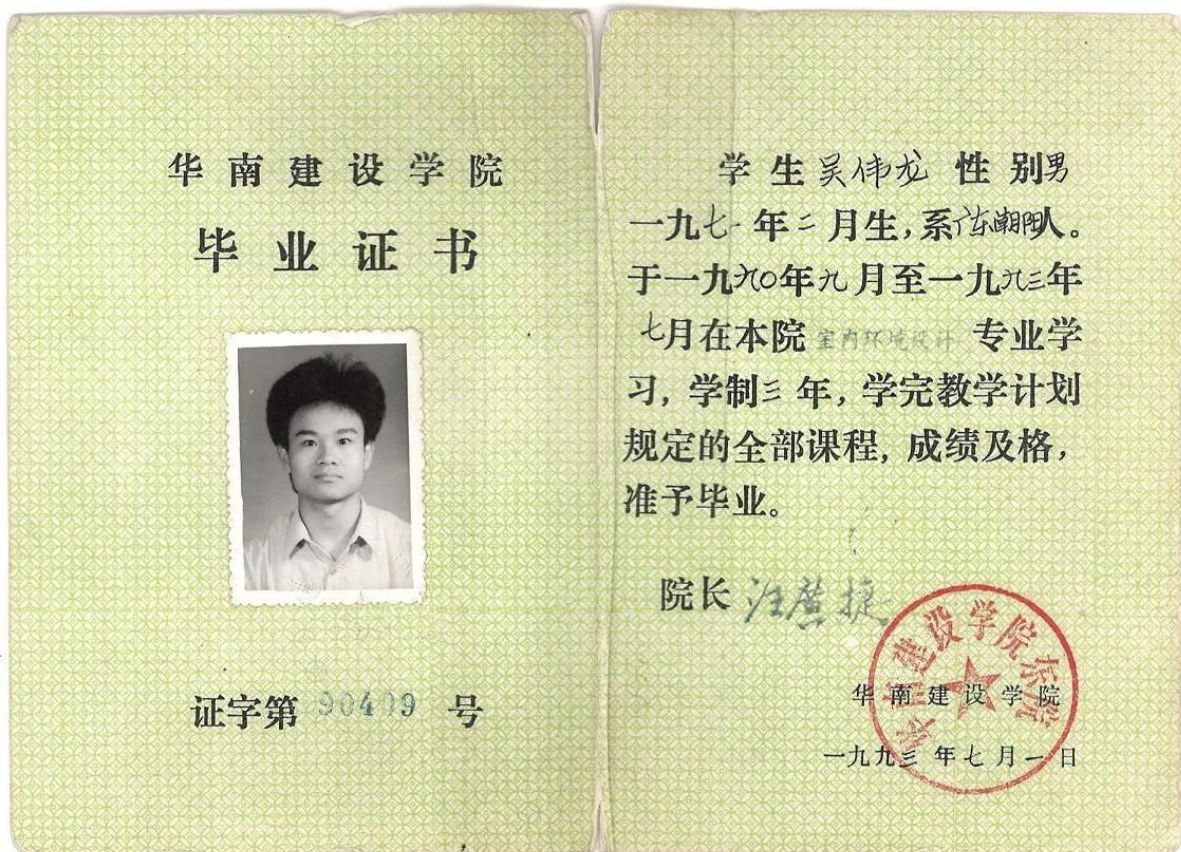 华南建设学院
毕业证书
证字第 90409 号
学生吴伟龙性别男
一九七一年二月生，系广东潮阳人。
于一九九〇年九月至一九九三年
七月在本院 室内环境设计 专业学
习，学制三年，学完教学计划
规定的全部课程，成绩及格，
准予毕业。
院长
华南建设学院东院
华南建设学院
一九九三年七月一日